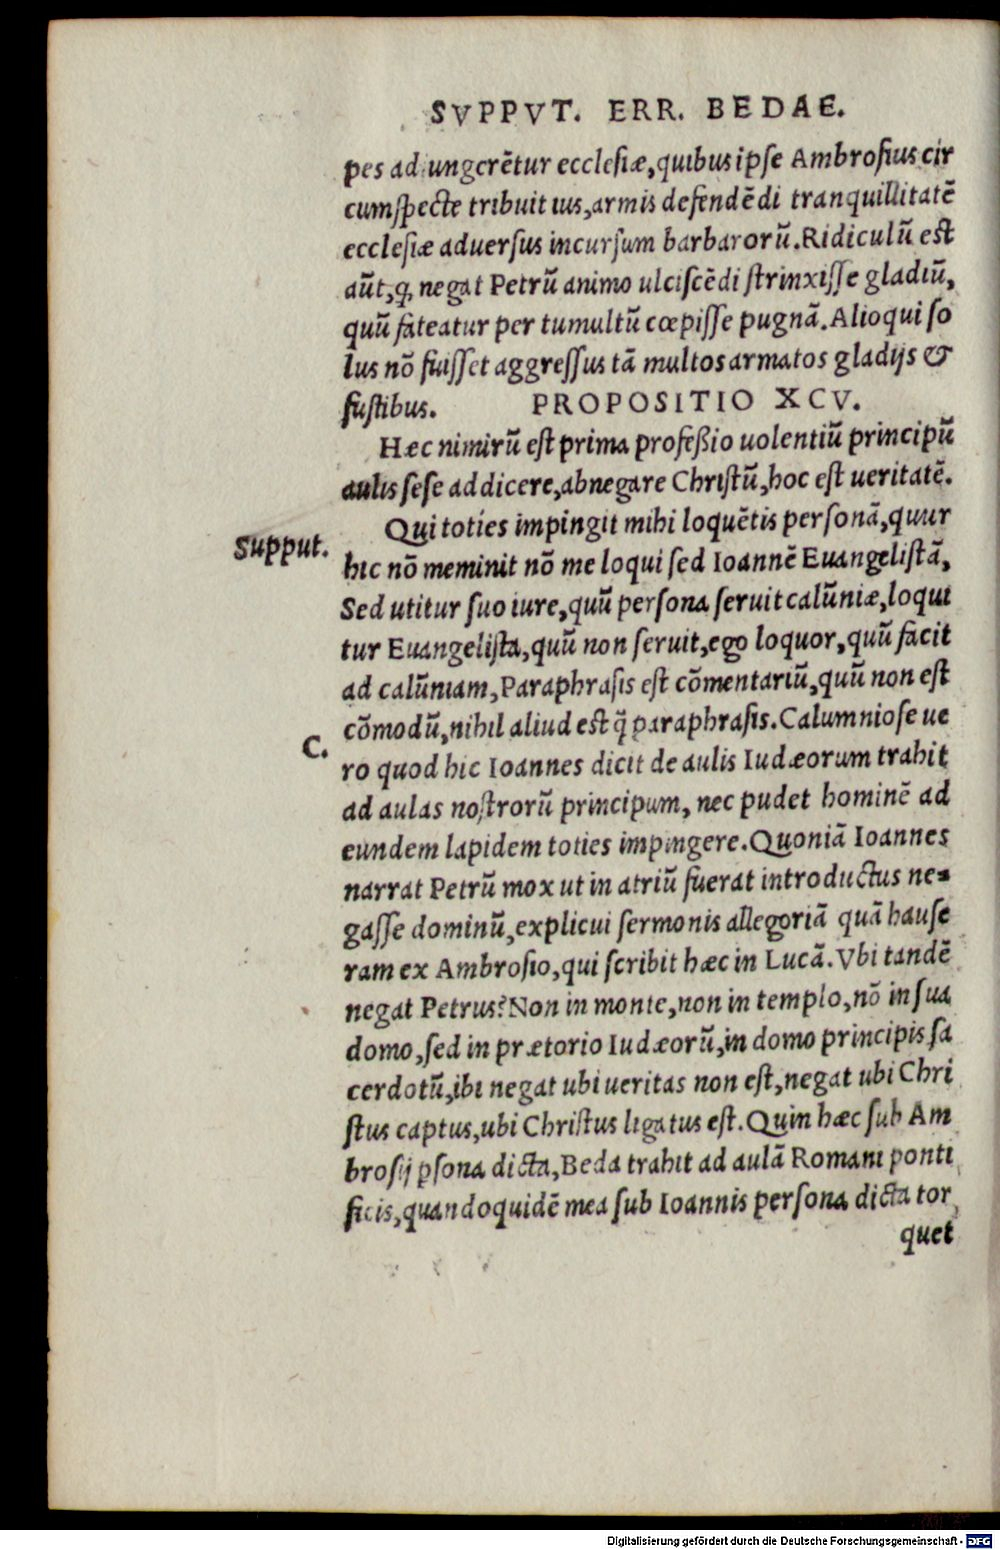 SVPPVT. ERR. BEDAE.
pes ad ungerẽtur ecclesiæ, quibus ipse Ambrosius cir
cumspecte tribuit ius, armis defendẽdi tranquillitatẽ
ecclesiæ aduersus incursum barbarorũ. Ridiculũ est
aũt, ꝙ negat Petrũ animo ulciscẽdi strinxisse gladiũ,
quũ fateatur per tumultũ cœpisse pugnã. Alioqui so
lus nõ fuisset aggressus tã multos armatos gladijs &
fustibus. PROPOSITIO XCV.
Hæc nimirũ est prima profeßio uolentiũ principũ
aulis sese addicere, abnegare Christũ, hoc est ueritatẽ.
Supput.
Qui toties impingit mihi loquẽtis personã, quur
hic nõ meminit nõ me loqui sed Ioannẽ Euangelistã,
Sed utitur suo iure, quũ persona seruit calũniæ, loqui
tur Euangelista, quũ non seruit, ego loquor, quũ facit
ad calũniam, Paraphrasis est cõmentariũ, quũ non est
cõmodũ, nihil aliud est q̃ paraphrasis. Calumniose ue
C.
ro quod hic Ioannes dicit de aulis Iudæorum trahit
ad aulas nostrorũ principum, nec pudet hominẽ ad
eundem lapidem toties impingere. Quoniã Ioannes
narrat Petrũ mox ut in atriũ fuerat introductus ne=
gasse dominũ, explicui sermonis allegoriã quã hause
ram ex Ambrosio, qui scribit hæc in Lucã. Vbi tandẽ
negat Petrus? Non in monte, non in templo, nõ in sua
domo, sed in prætorio Iudæorũ, in domo principis sa
cerdotũ, ibi negat ubi ueritas non est, negat ubi Chri
stus captus, ubi Christus ligatus est. Quin hæc sub Am
brosij ꝑsona dicta, Beda trahit ad aulã Romani ponti
ficis, quandoquidẽ mea sub Ioannis persona dicta tor
quet
Digitalisierung gefördert durch die Deutsche Forschungsgemeinschaft - DFG